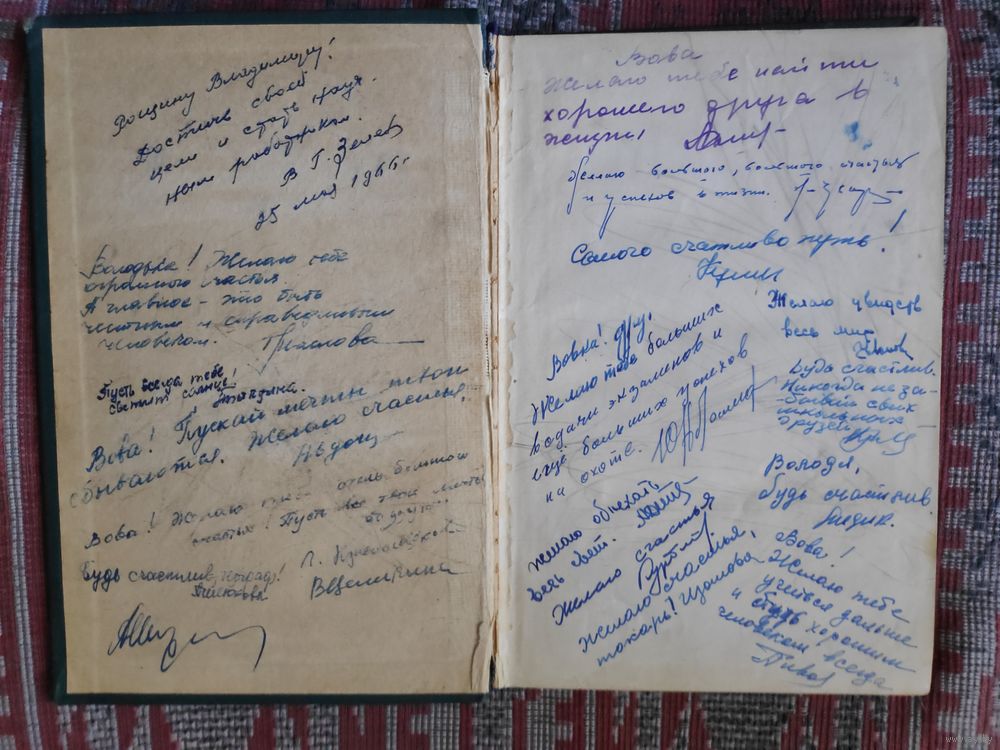 Рощину Владимиру!
Достичь своей
цели и стать науч
ным работником.
В. Г.
25 мая 1966 г.
Володька! Желаю тебе
огромного счастья.
А главное - это быть
честным и справедливым
человеком.
Пусть всегда тебе
светит солнце!
Вова! Пускай мечты твои
сбываются. Желаю счастья.
Вова! Желаю тебе очень большого
счастья! Пусть все твои мечты
Будь счастлив,
Вова
Желаю тебе найти
хорошего друга в
жизни
Желаю большого, большого счастья
и успехов в жизни.
Самого счастливо путь!
Желаю увидеть
весь мир
Вовка!
Желаю тебе больших
удачи экзаменов и
ещё больших успехов
на охоте.
Будь счастлив.
Никогда не за-
бывай своих
школьных
друзей
Володя,
будь счастлив.
Лидия.
Желаю объехать
весь свет.
Желаю счастья
Желаю счастья,
токарь! Изотова
Вова!
Желаю тебе
учиться дальше
и быть хорошим
человеком всегда